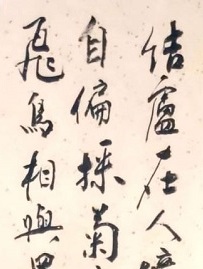 結廬在人
自偏採菊
飛鳥相與